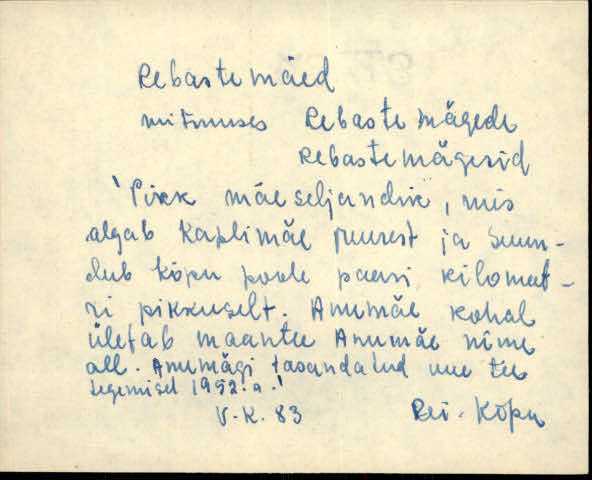 Rebastemäed
mitmuses Rebaste mägede
Rebastemägesid
'Pikk mäeseljandik, mis
algab Kaplimäe juurest ja suun-
dub Kõpu poole paari kilomeet-
ri pikkuselt. Anumäe kohal
ületab maantee Anumäe nime
all. Anumägi tasandatud uue tee
tegemisel 1952.a.'
V.K. 83 Rei - Kõpu